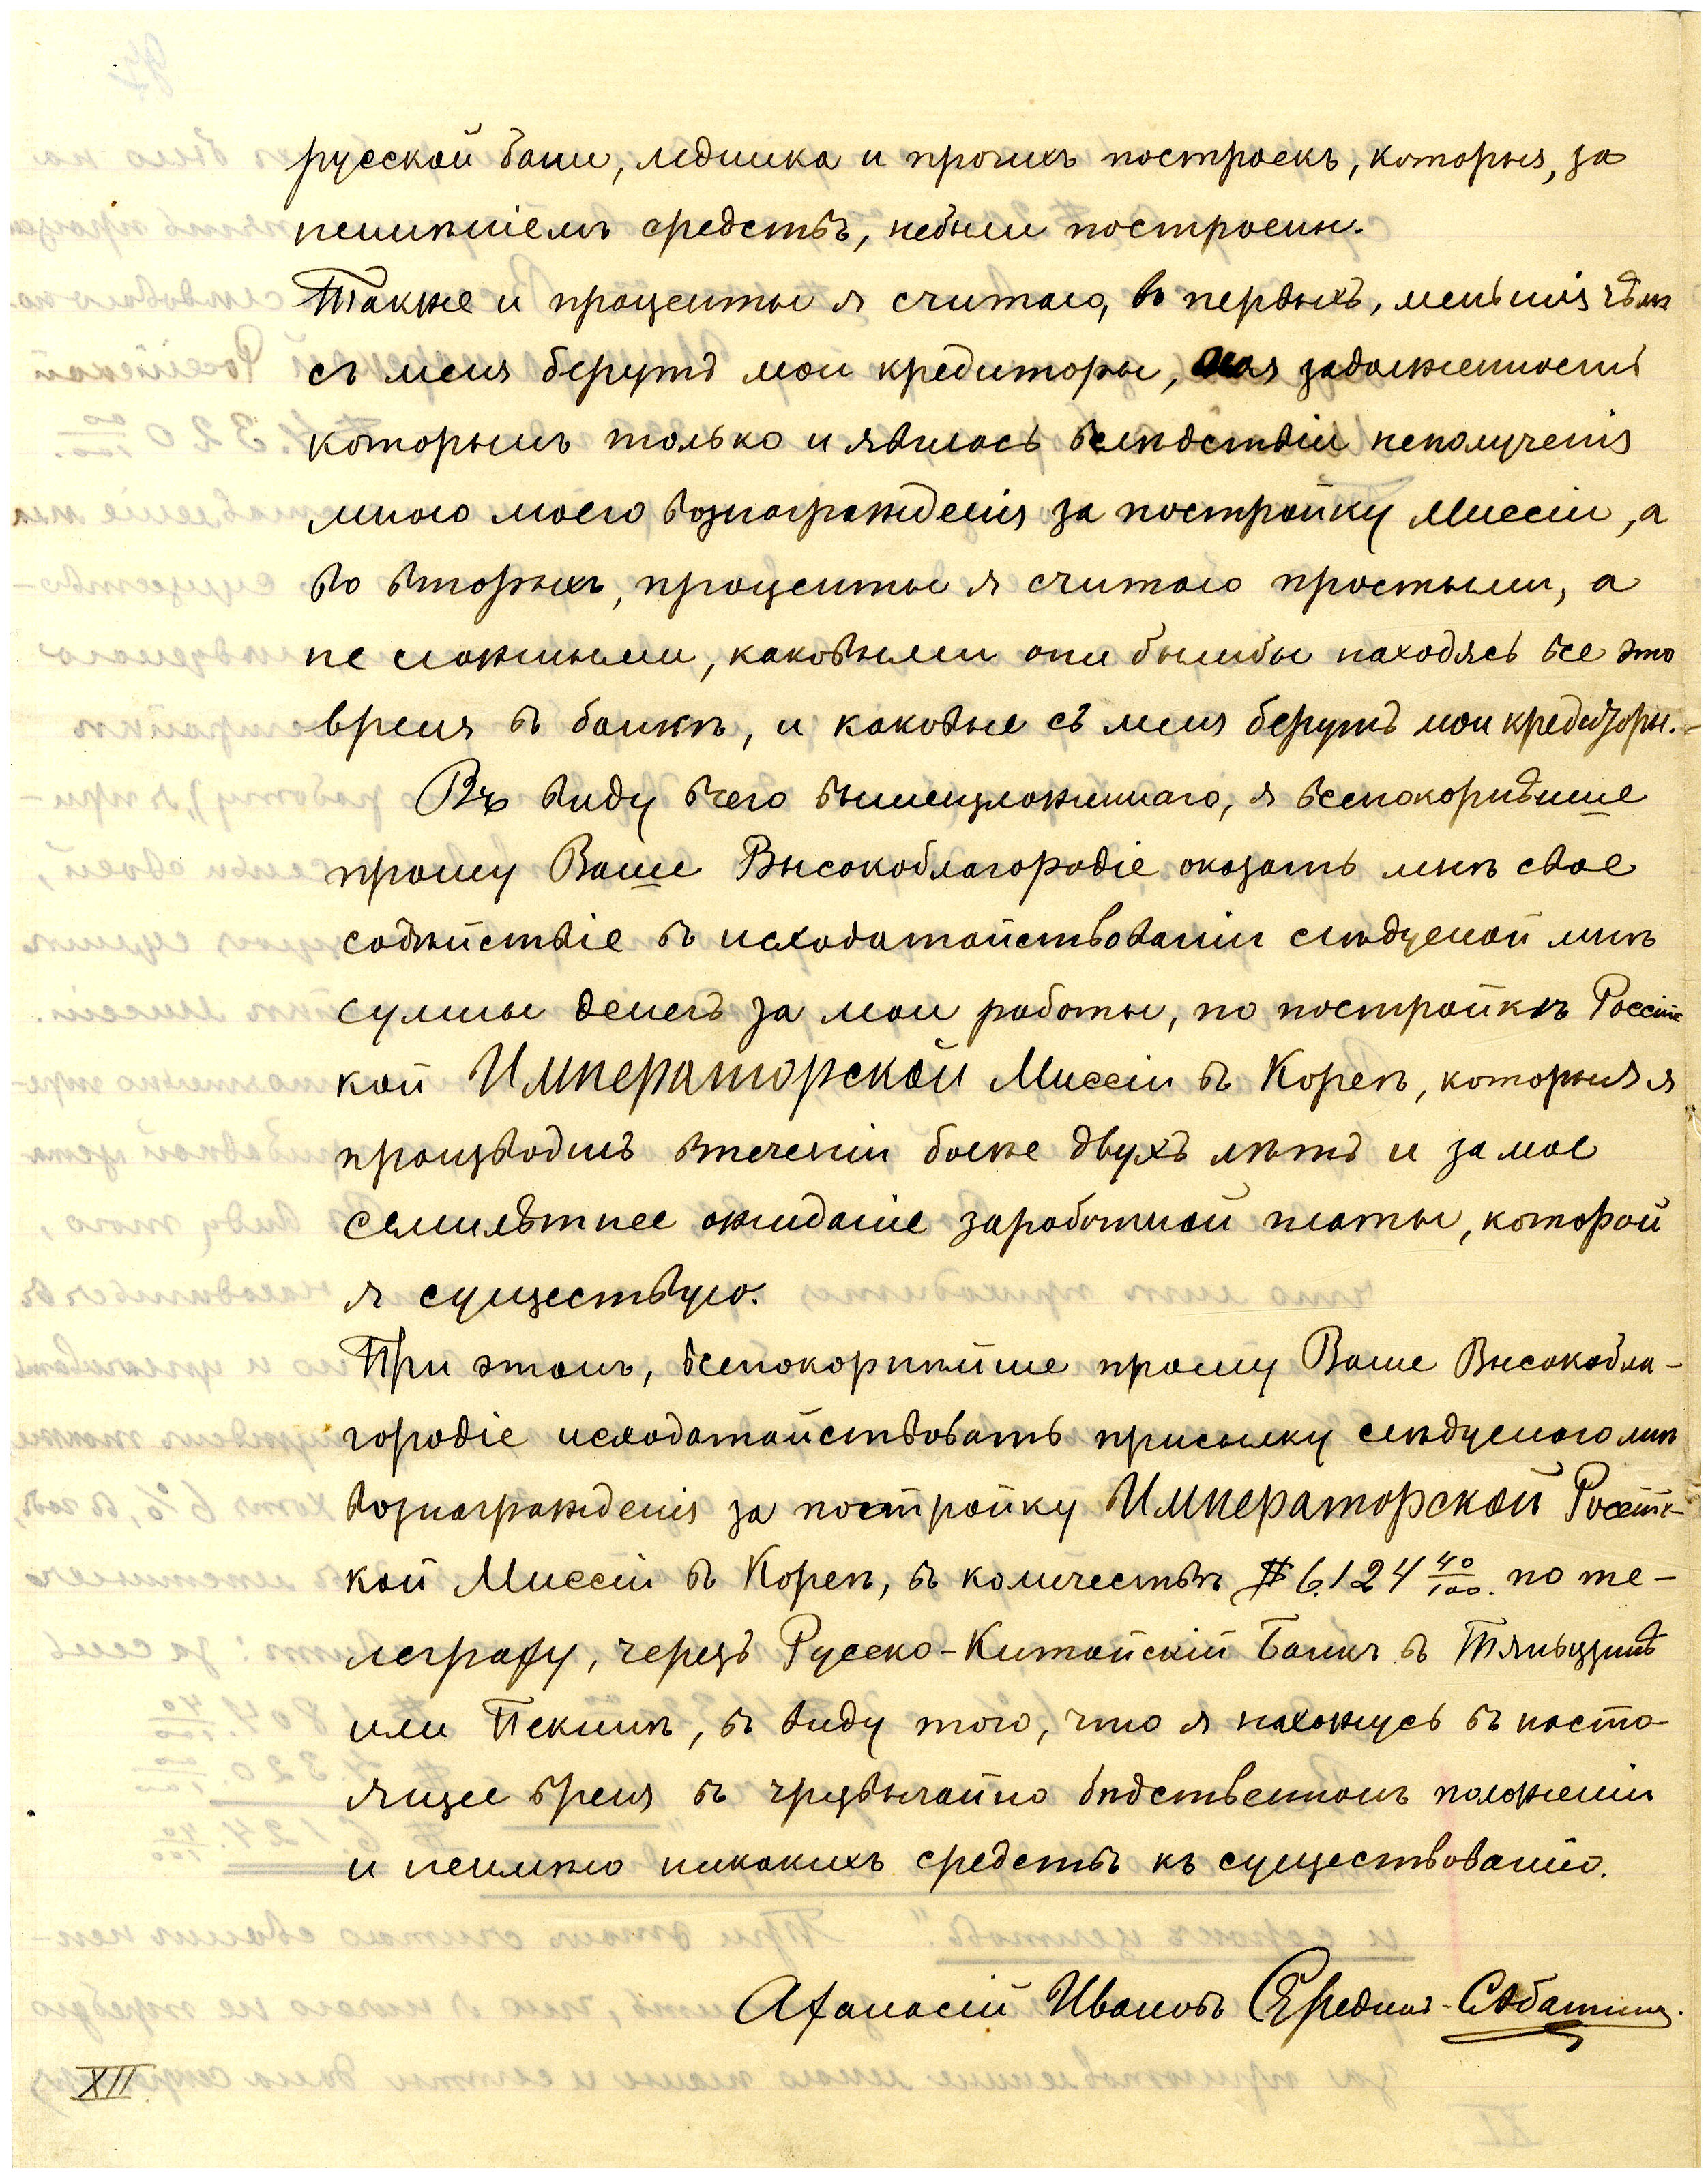 русской бани, ледника и прочихъ построекъ, которыя, за
неимѣніемъ средствъ, небыли построены.
Также и проценты я считаю, во первыхъ, меньшія чѣмъ
съ меня берутъ мои кредиторы, моя задолженность
которымъ только и явилась вслѣдствіи неполученія
мною моего вознагражденія за постройку Миссіи, а
во вторыхъ, проценты я считаю простыми, а
не сложными, каковыми они былибы находясь все это
время въ банкѣ, и каковые съ меня берутъ мои кредиторы.-
Въ виду всего вышеизложеннаго, я всепокорнѣйше
прошу Ваше Высокоблагородіе оказать мнѣ свое
содѣйствіе въ исходатайствованіи слѣдуемой мнѣ
суммы денегъ за мои работы, по постройкѣ Россійс
кой Императорской Миссіи въ Кореѣ, которыя я
производилъ втеченіи болѣе двухъ лѣтъ и за мое
семилѣтнее ожиданіе заработной платы, которой
я существую.
При этомъ, всепокорнѣйше прошу Ваше Высокобла-
городіе исходатайствовать присылку слѣдуемаго мнѣ
вознагражденія за постройку Императорской Россійс-
кой Миссіи въ Кореѣ, въ количествѣ $ 6.124 40/100. по те-
леграфу, черезъ Русско-Китайскій Банкъ въ Тяньцзинѣ
или Пекинѣ, въ виду того, что я нахожусь въ насто-
ящее время въ чрезвычайно бѣдственномъ положеніи
и неимѣю никакихъ средствъ къ существованію.
Афанасій Ивановъ Середин-Сабатинъ.
XII